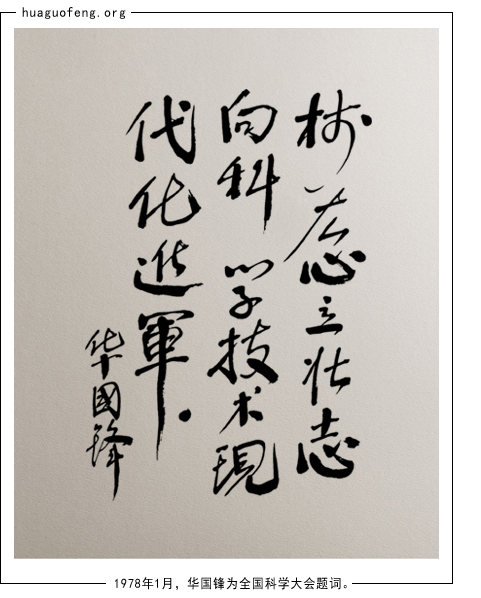 huaguofeng.org
树雄心立壮志
向科学技术現
代化進軍。
华國鋒
1978年1月，华国锋为全国科学大会题词。